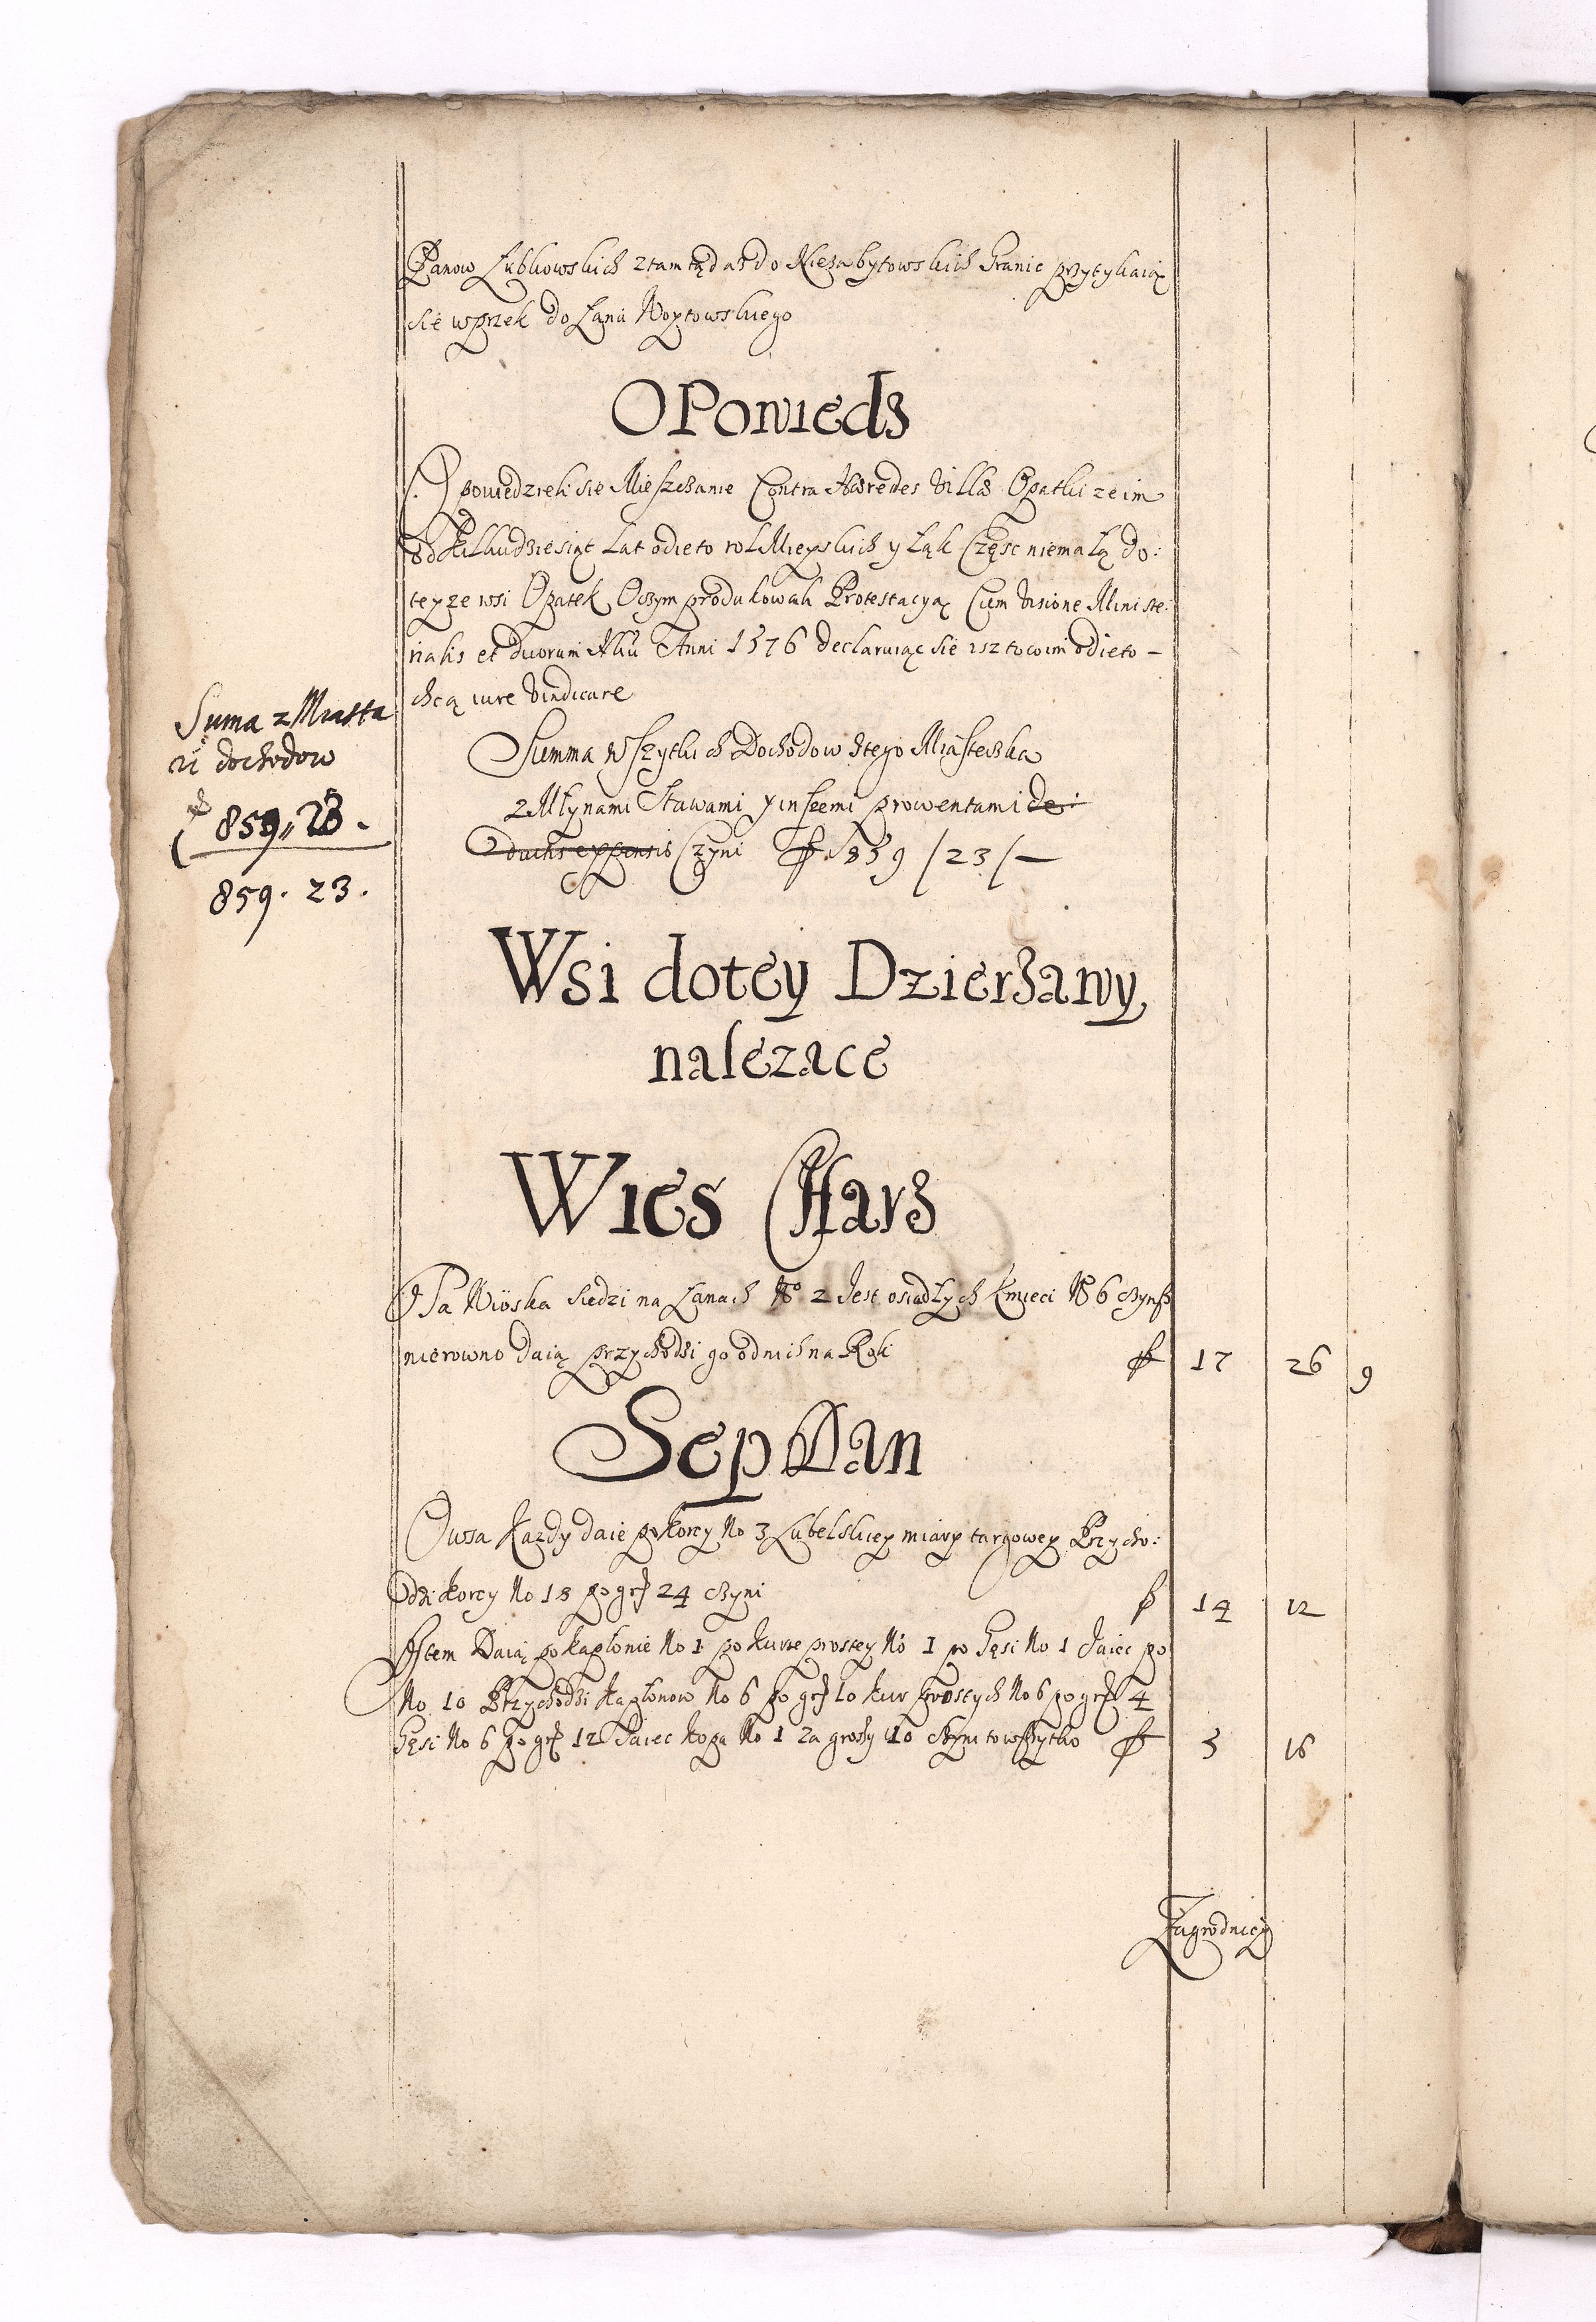 Panow Lubkowskich ztamtąd asz do Niezabytowskich Granic przytykaiąc
sie wprzek do Łanu Woytowskiego
OPowiedz
Opowiedzieli sie Mieszczanie Contra Hæredes Villæ Opatki ze im
od kilkudziesiąt Lat odieto rol Mieyskich y Łąk Część niemałą do:
teyze wsi Opatek Oczym produkowali Protestacyą Cum Visione Ministe:
rialis et duorum Nliū Anni 1576 declaruiąc sie isz to co im odieto –
chcą iure Vindicare
Suma z Miasta
dochodow
859„ 23.
859. 23.
Summa Wszytkich Dochodow Stego Miasteczka
z Młynami Stawami y inszemi prowentami de:
ductis expensis Czyni ƒ 859 / 23 / –
Wsi dotey Dzierzawy
nalezace
Wies Charz
Ta Wioska siedzi na Łanach No 2 Jest osiadłych Kmieci No 6 czynsz
nierowno daią przychodzi go odnich na Rok ƒ 17 26 9
Sep Dan
Owsa Kazdy daie po korcy No 3 Lubelskiey miary targowey Przycho:
dzi korcy No 18 po gr 24 czyni ƒ 14 12
Item Daią po kapłonie No 1 po kurze prostey No 1 po Gęsi No 1 Jaiec po
No 10 Przychodzi kapłonow No 6 po gr 10 kur prostych No 6 po gr 4
Gęsi No 6 po gr 12 Jaiec kopa No 1 za groszy 10 czyni to wszytko ƒ 5 16
Zagrodnicy